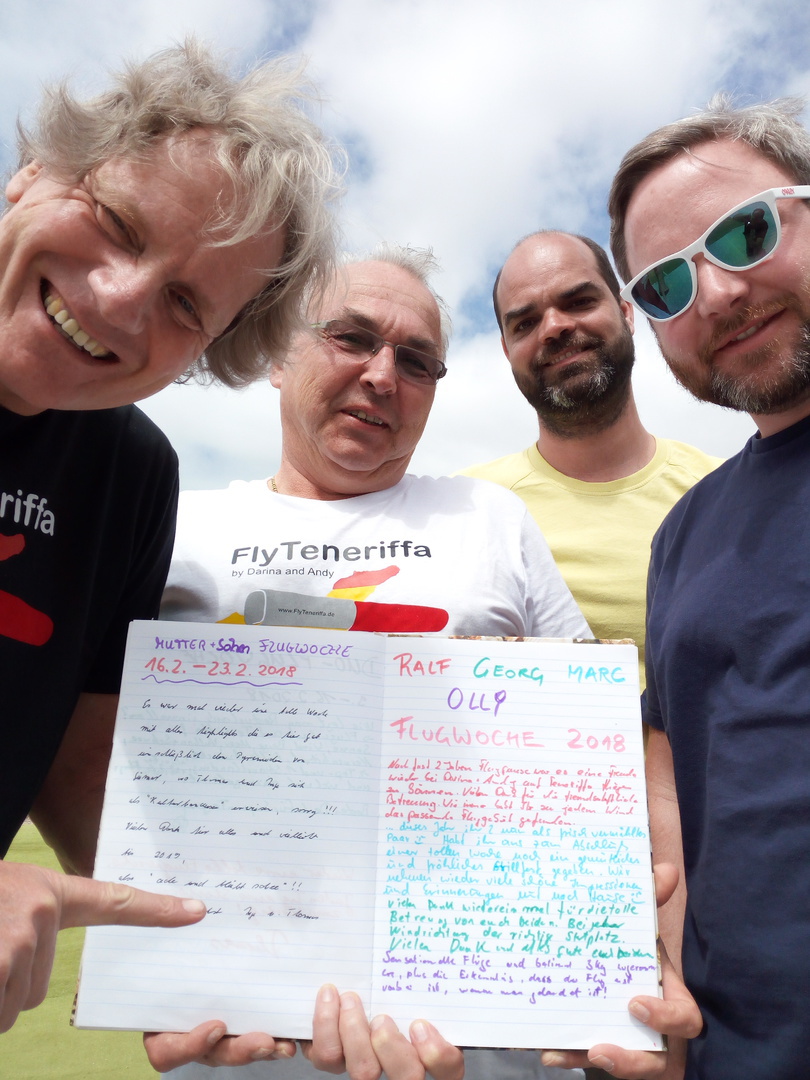 riffa
FlyTeneriffa
by Darina and Andy
www.FlyTeneriffa.de
MUTTER + Sohn FLUGWOCHE
16.2. – 23.2. 2018
Es war mal wieder eine tolle Woche
mit allen Highlights die es hier gab
einschließlich den Pyramiden von
Güimar, wo Thomas und
als " " erwiesen, sorry!!!
Vielen Dank für alles und vielleicht
bis 2019,
also "ade und bleibt sauber"!!
Thomas
RALF GEORG MARC
OLLI
FLUGWOCHE 2018
Nach fast 2 Jahren Flugpause war es eine Freude
wieder bei Darina + Andy auf Teneriffa fliegen
zu können. Vielen Dank für die freundschaftliche
Betreuung. Wie immer habt Ihr zu jedem Wind
das passende Fluggebiet gefunden.
... dieses Jahr ihr 2 nun als frisch vermähltes
Paar :) Habt ihr uns zum Abschluß
einer tollen Woche noch ein gemütliches
und fröhliches Grillfest gegeben. Wir
nehmen wieder viele schöne Impressionen
und Erinnerungen mit nach Hause :)
Vielen Dank wieder einmal für die tolle
Betreuung von euch beiden. Bei jeder
Windrichtung der richtige Startplatz.
Vielen Dank und alles gute euch beiden
Sensationelle Flüge und
plus die Erkenntnis, dass der Flug erst
vorbei ist, wenn man gelandet ist!